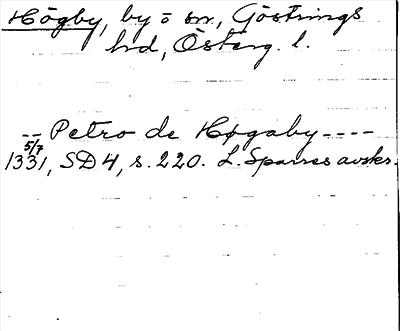 Högby, by o sn, Göstrings
hd, Österg. l.
-- Petro de Høgaby ----
5/7
1331, SD 4, s. 220. L. Sparres avskr.